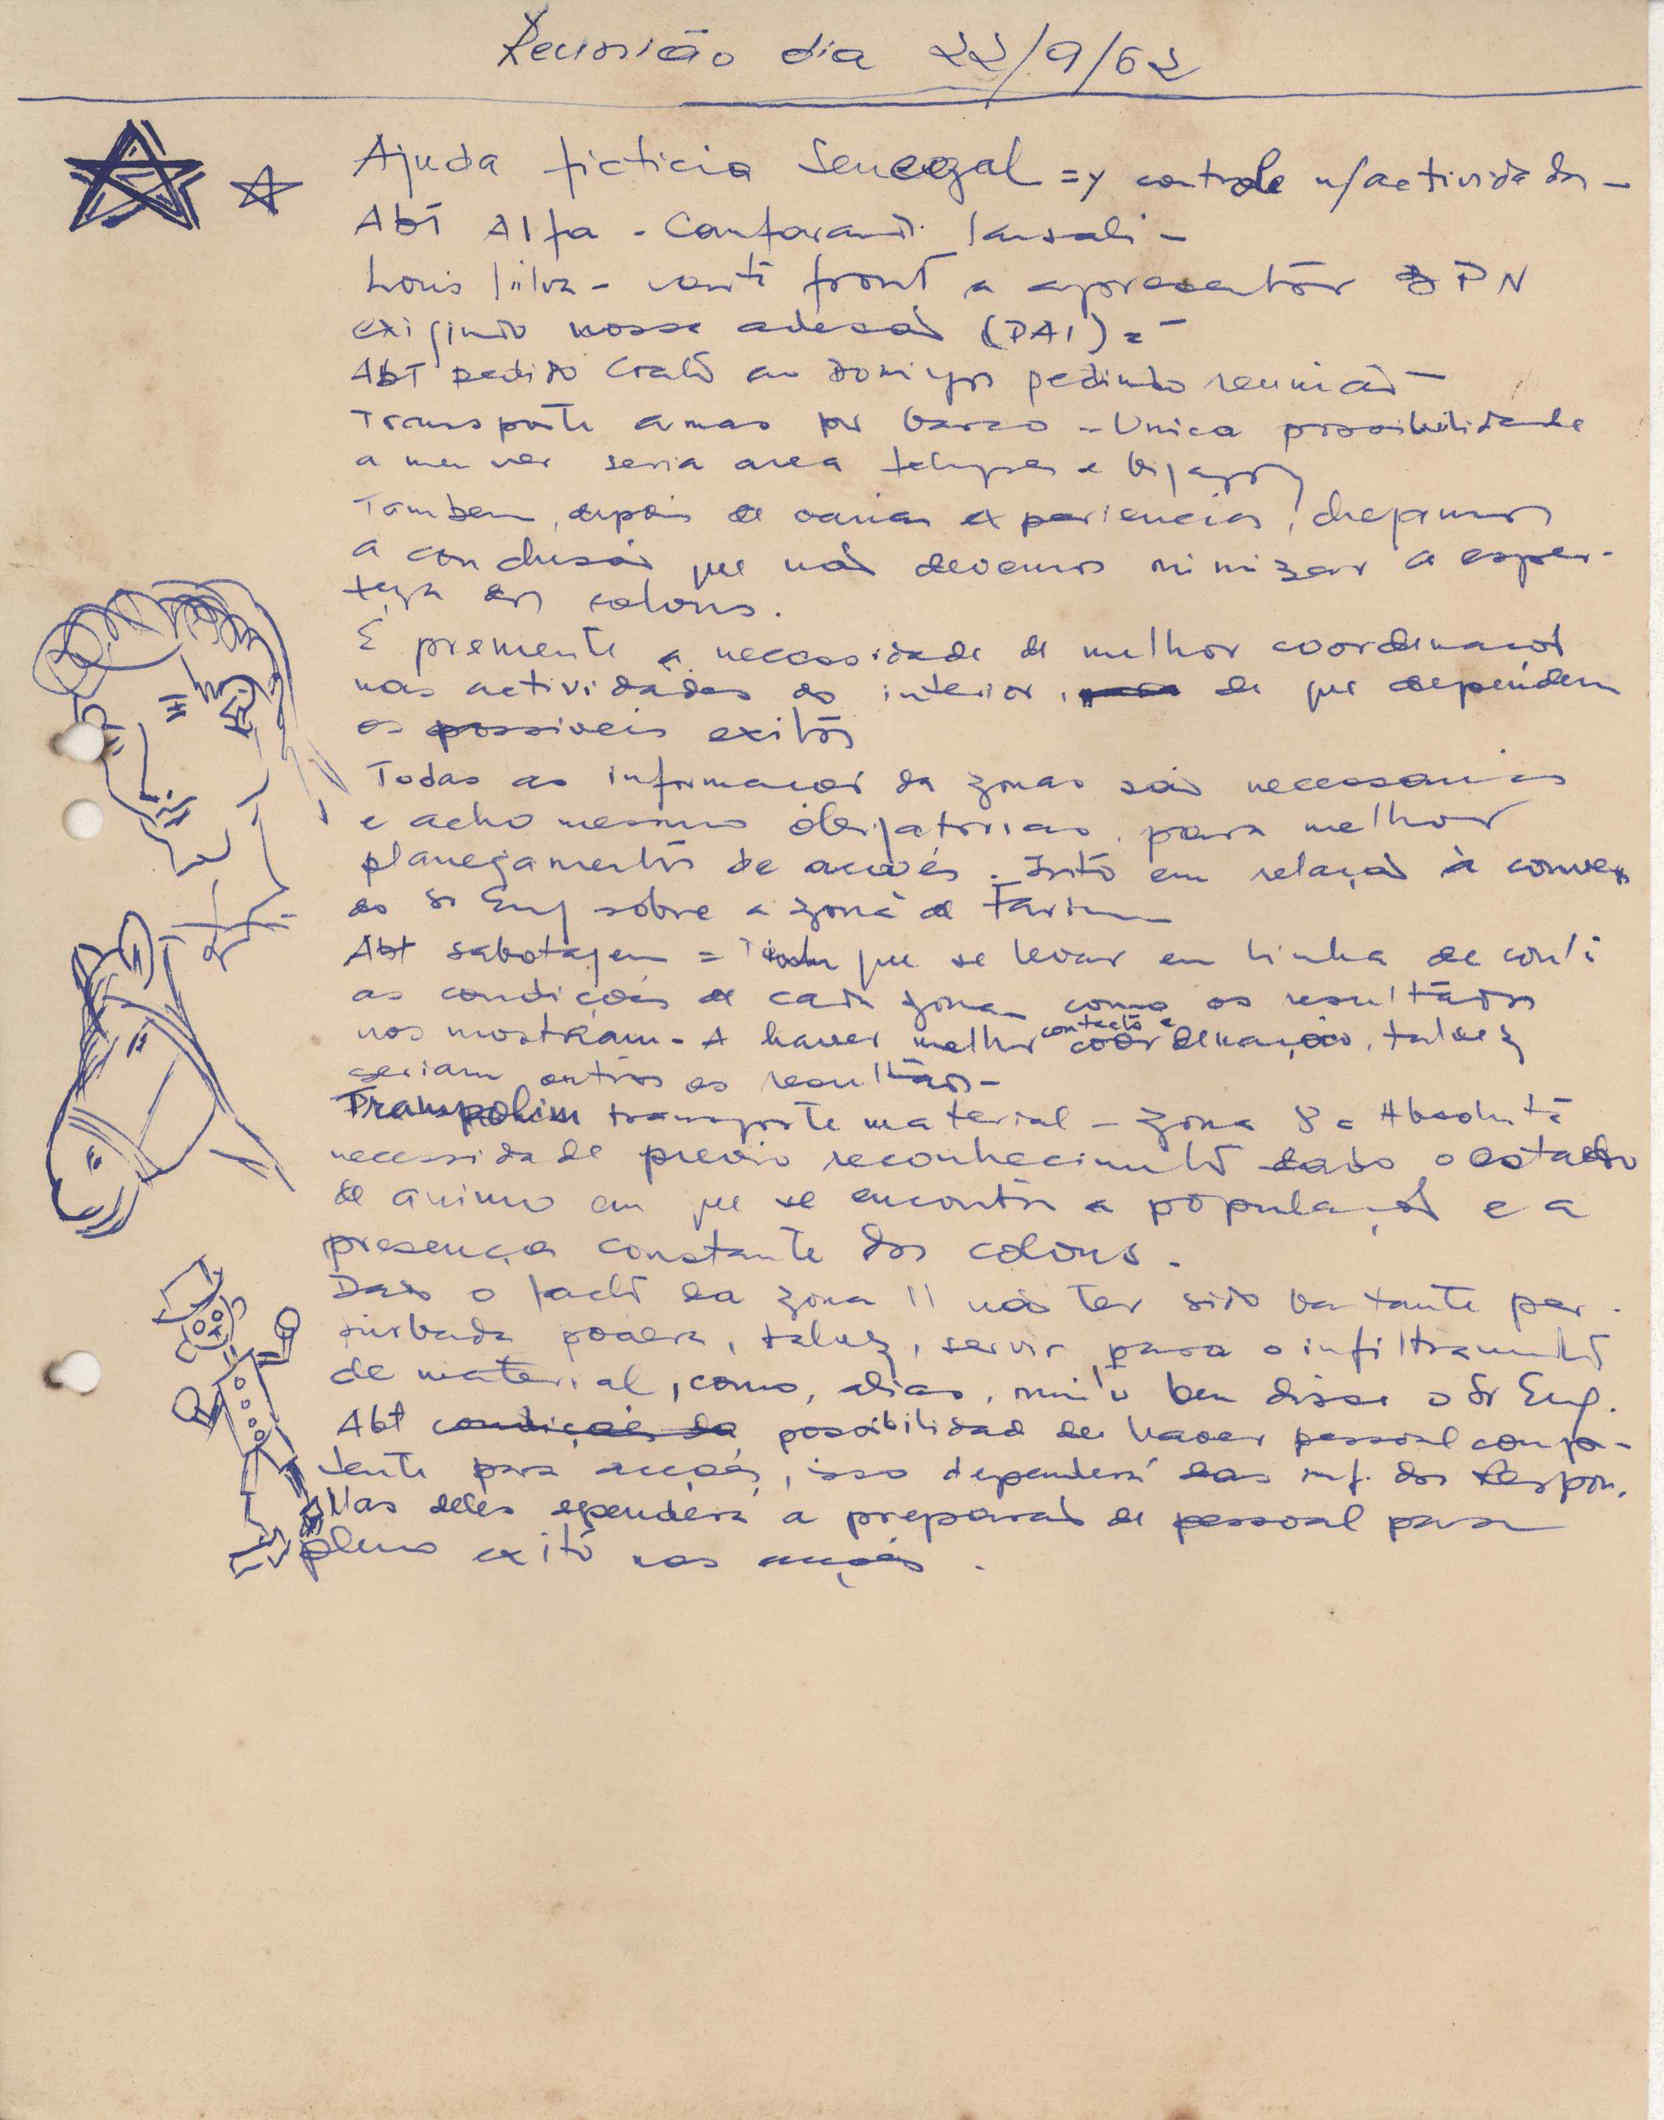 Reunião dia 22/9/62
Ajuda ficticia Senegal => controle n/actividades -
Abt Alfa - Mansali -
Louis Silva - front a apresentar PN
exigindo nossa adesão (PAI) =
Abt pedido Domingos pedindo reunião -
Transporte armas por barco - Unica possibilidade
a meu ver seria area e bijagos
Tambem, depois de varias experiencias, chegamos
a conclusão que não devemos minimizar a esper-
teza dos colons.
É premente a necessidade de melhor coordenação
nas actividades do interior, de que dependem
os possiveis exitos
Todas as informações da zonas são necessarias
e acho mesmo obrigatorias para melhor
planejamento de acções. Isto em relação à convers
do Sr Eng sobre a zona de Farim
Abt sabotagem = que se levar em linha de conta
as condições de cada zona como os resultados
nos mostram - A haver melhor contacto e coordenação, talvez
seriam outros os resultados -
Trampolim transporte material - zona 8 = Absoluta
necessidade previo reconhecimento dado o estado
de animo em que se encontra a população e a
presença constante dos colons.
Dado o facto da zona 11 não ter sido bastante per-
turbada podera, talvez, servir para o infiltramento
de material, como, alias, muito bem disse o Sr Eng.
Abt condições da possibilidad de haver pessoal compe-
tente para acções, isso dependerá das inf. dos Respon.
Mas deles dependerá a preparação de pessoal para
pleno exito nas acções.